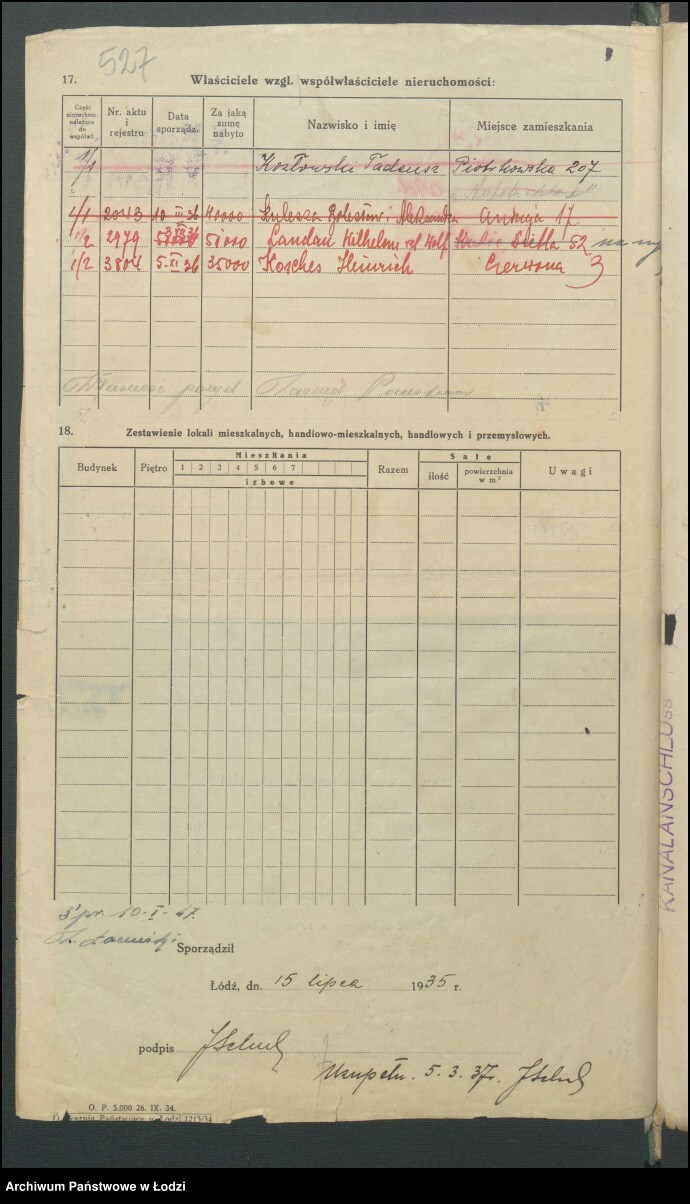 527
17. Właściciele wzgl. współwłaściciele nieruchomości:
Część nieruchom. należąca do współwł. Nr. aktu i rejestru Data sporządz. Za jaką sumę nabyto Nazwisko i imię Miejsce zamieszkania
1/1 Kozłowski Tadeusz Piotrkowska 207
1/1 2043 10 III 36 40000 Kulesza Bolesław i Aleksandra Andrzeja 17
1/2 2979 51000 Landau Wilhelm vel Wolf 52
1/2 3804 5.XI 36 35000 Kosches Heinrich Czerwona 3
18. Zestawienie lokali mieszkalnych, handlowo-mieszkalnych, handlowych i przemysłowych.
Budynek Piętro Mieszkania Razem Sale Uwagi
1 2 3 4 5 6 7 ilość powierzchnia w m.²
izbowe
Spr. 10-I-47.
Sporządził
Łódź, dn. 15 lipca 1935 r.
podpis
Uzupełn. 5.3.37r.
O. P. 5.000 26. IX. 34.
Drukarnia Państwowa w Łodzi 1213/34
KANALANSCHLUSS
Archiwum Państwowe w Łodzi